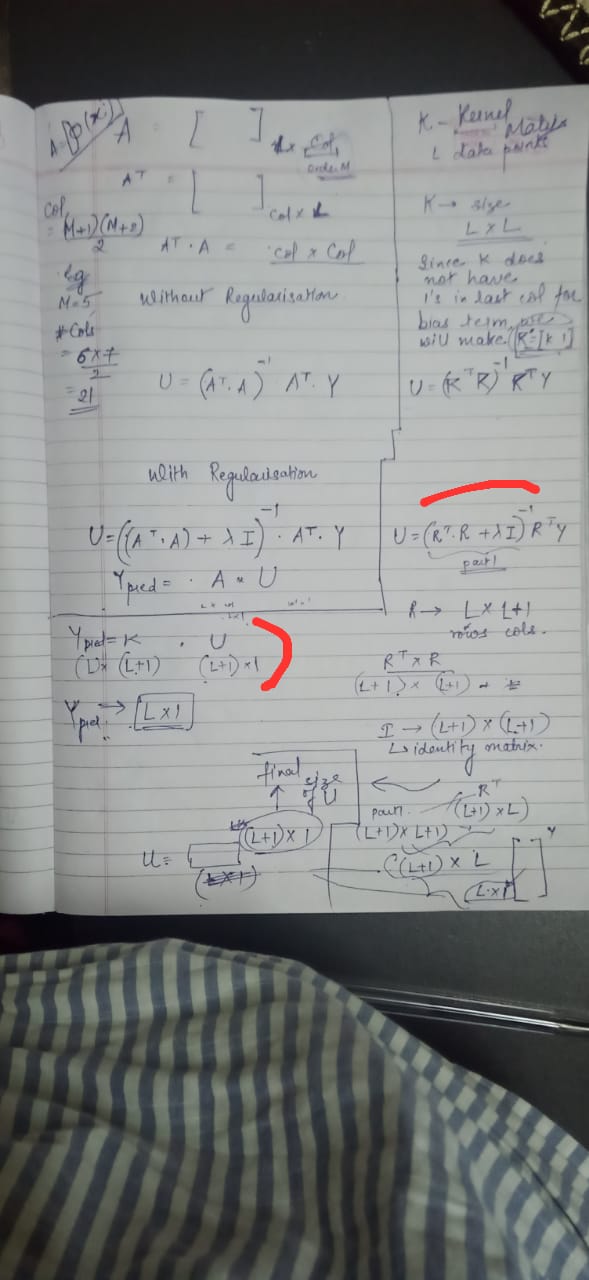 A = φ(x)
A = [ ] L x Cols
order M
Aᵀ = [ ] Col x L
Col
= (M+1)(M+2)
2
Aᵀ · A = Col x Col
Eg
M=5
# Cols
= 6 x 7
2
= 21
Without Regularisation
U = (Aᵀ. A)⁻¹ Aᵀ. Y
With Regularisation
U = ((Aᵀ. A) + λ I)⁻¹ . Aᵀ. Y
Ypred = . A x U
Ypred = K . U
(L) x (L+1) (L+1) x 1
Ypred → L x 1
K - Kernel Matrix
L data points
K → size
L x L
Since K does
not have
1's in last col for
bias term, we
will make R = [K 1]
U = (RᵀR)⁻¹ RᵀY
U = (Rᵀ. R + λ I)⁻¹ RᵀY
part 1
R → L x L+1
rows cols.
Rᵀ x R
(L+1) x (L+1)
I → (L+1) x (L+1)
↳ identity matrix.
final size of U
(L+1) x 1
U =
(L x 1)
Rᵀ
part 1 (L+1) x L)
(L+1) x L+1)
((L+1) x L [ ] Y
L x 1